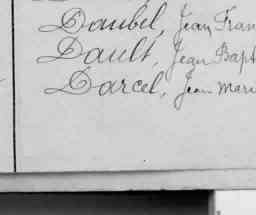 Daubel, Jean Fran
Dault, Jean Bapt
Darcel, Jean Mari